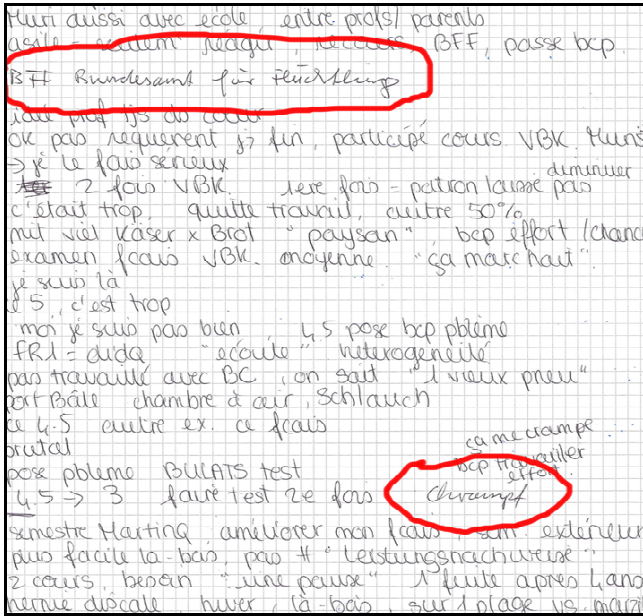 Muri aussi avec école, entre profs/ parents
asile = système réagir, recours BFF, passe bcp.
BFF Bundesamt für Flüchtling
prof tjs du cœur
ok pas requérent j; fin, participé cours VBK. Muns
→ je le fais sérieux
diminuer
2 fois VBK. 1ere fois = patron laisse pas
c'était trop, quitte travail, autre 50%
mit viel Käser x Brot "paysan", bcp effort /chance
examen fçais VBK. moyenne. "ça marchait".
je suis là
5, c'est trop
moi je suis pas bien, 4,5 pose bcp pblème
FR1 = dida "écoute" hétérogénéité
pas travaillé avec BC, on sait "1 vieux pneu"
port Bâle chambre à air, Schlauch
ce 4.5 autre ex. ce fçais
ça me crampe
brutal
bcp travailler
pose pblème BULATS test
effort
4.5 → 3 faire test 2e fois Chrampf
semestre Martina, améliorer mon fçais, extérieur
plus facile là-bas, pas # "Leistungsnachweise"
2 cours, besoin "une pause" 1 fuite après 4 ans
hernie discale, hiver, là-bas, sur 1 plage vs. mais